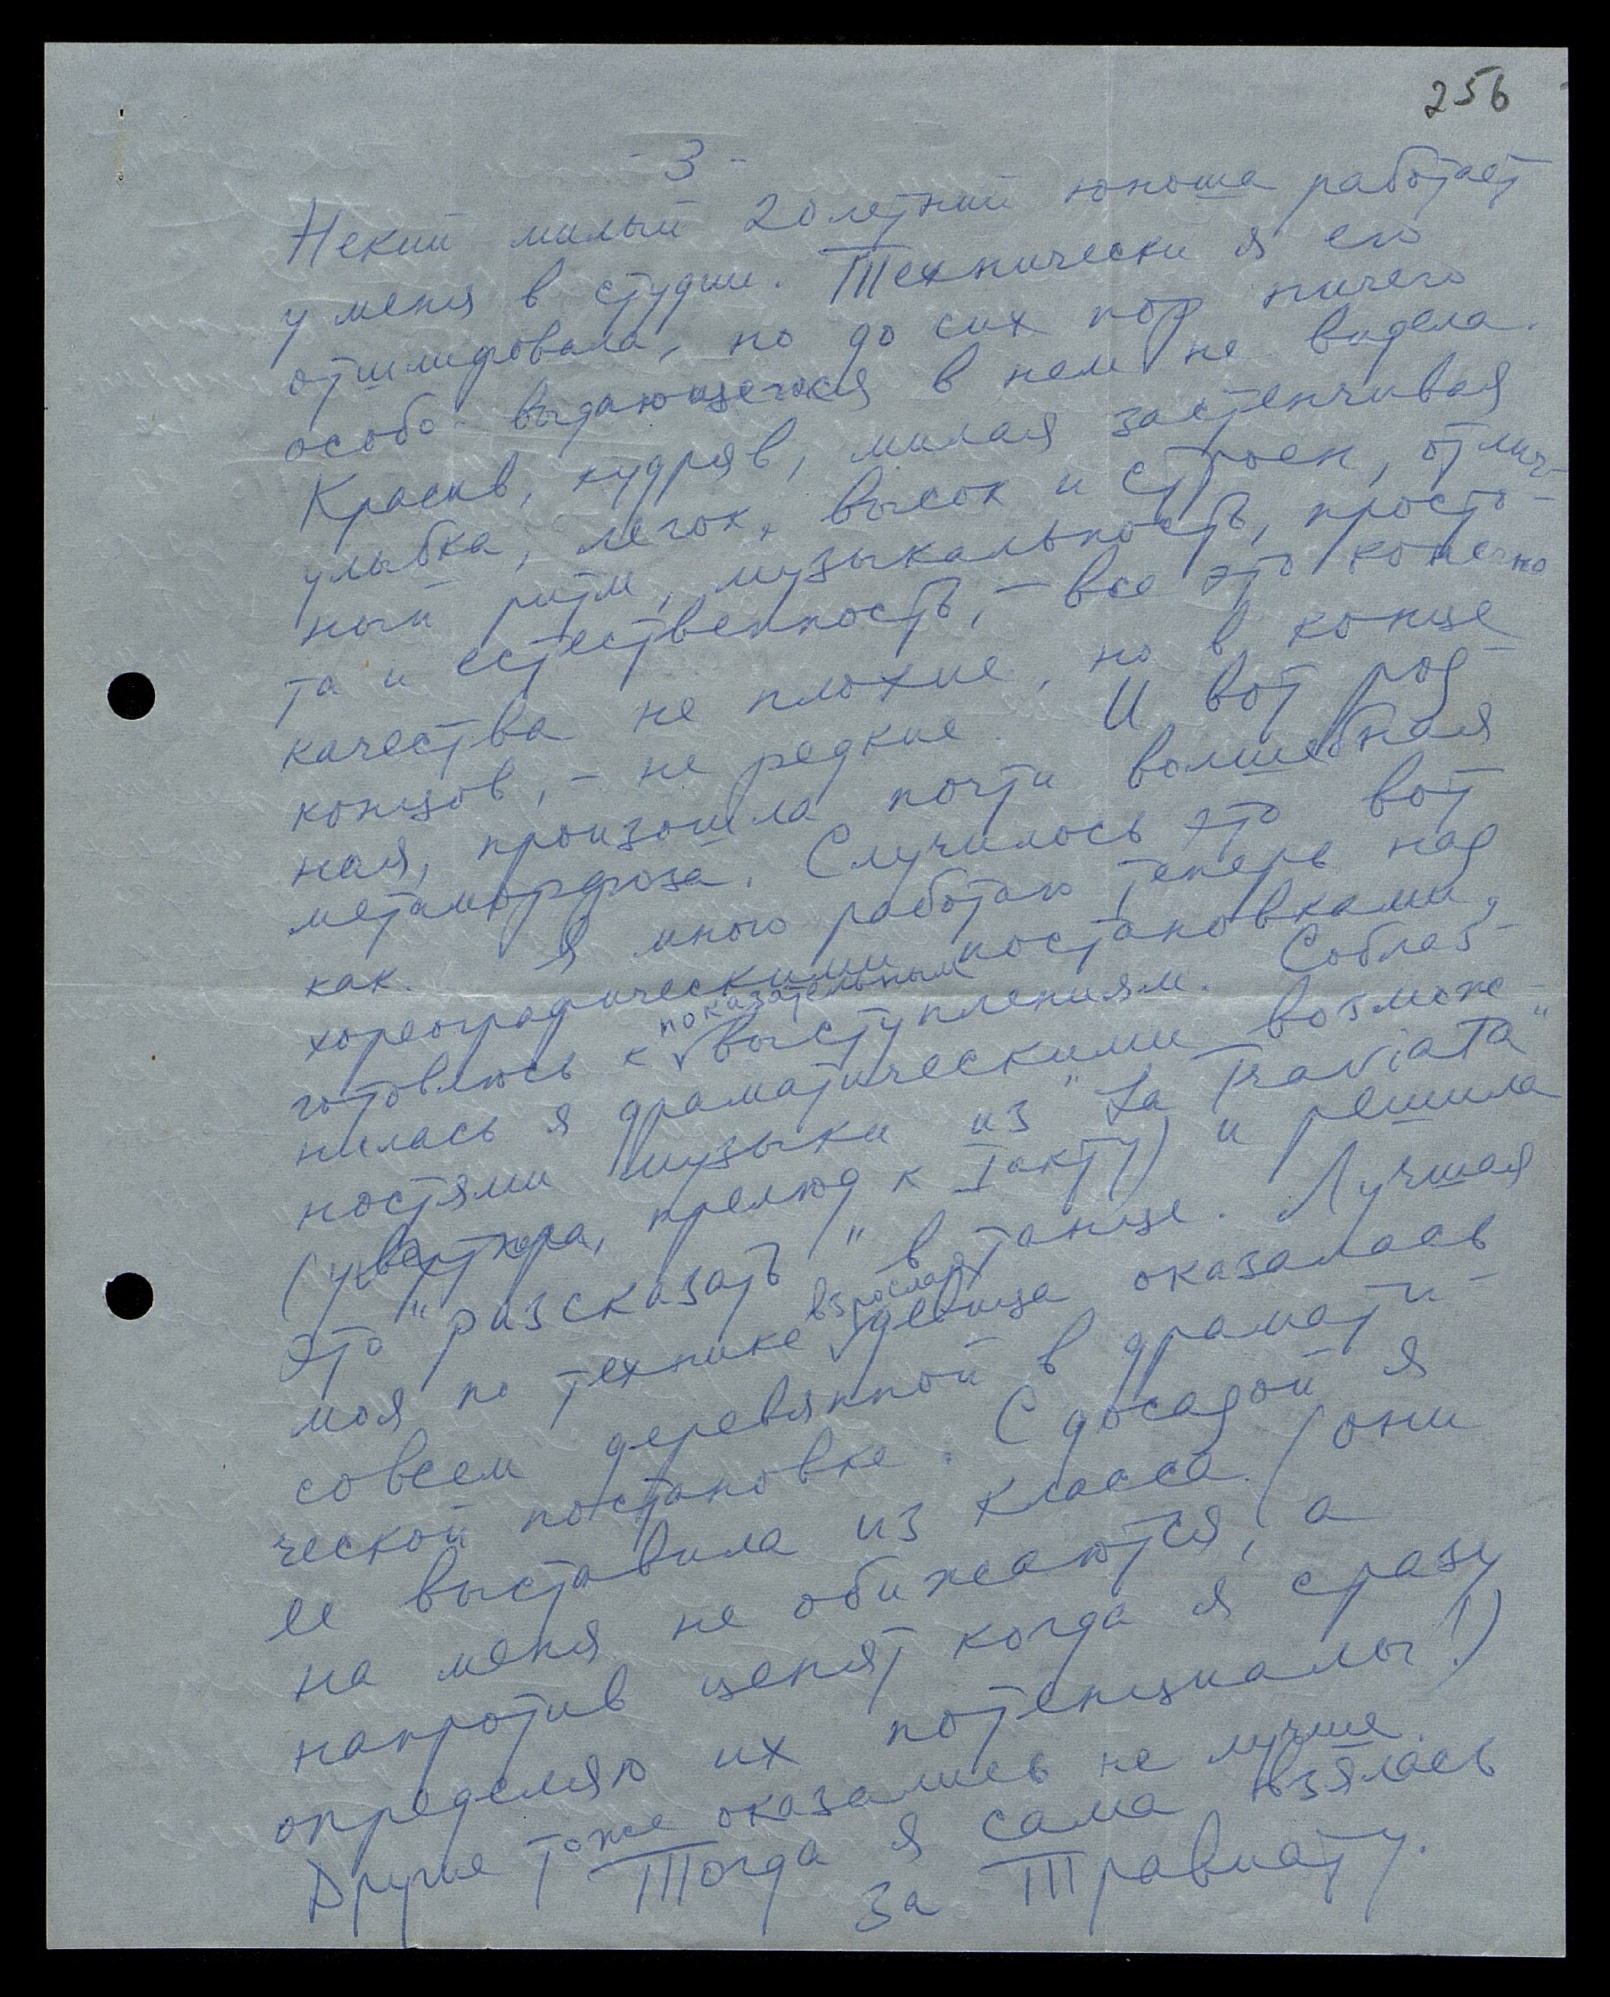 256
- 3 -
Некий милый 20летний юноша работает
у меня в студии. Технически я его
отшлифовала, но до сих пор ничего
особо выдающегося в нем не видела.
Красив, кудряв, милая застенчивая
улыбка, легок, высок и строен, отлич-
ный ритм, музыкальность, просто-
та и естественность, - все это конечно
качества не плохие, но в конце
концов, - не редкие. И вот род-
ная, произошла почти волшебная
метаморфоза. Случилось это вот
как. Я много работаю теперь над
хореографическими постановками,
готовлюсь к показательным выступлениям. Соблаз-
нилась я драматическими возмож-
ностями музыки из "La Traviata"
(увертюра, прелюд к I акту) и решила
это "разсказать" в танце. Лучшая
моя по технике взрослая девица оказалась
совсем деревянной в драмати-
ческой постановке. С досадой я
ее выставила из класса (они
на меня не обижаются, а
напротив ценят когда я сразу
определяю их потенциалы!)
Другие тоже оказались не лучше.
Тогда я сама взялась
за Травиату.